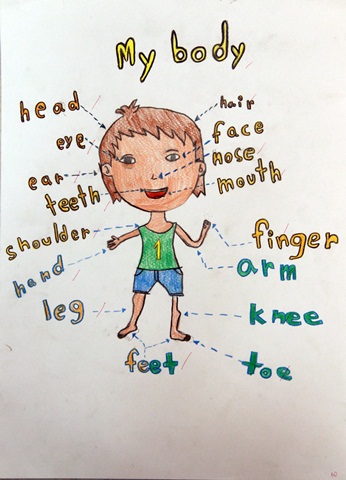 My body
head
hair
eye
face
ear
nose
teeth
mouth
shoulder
finger
hand
arm
leg
knee
feet
toe
1